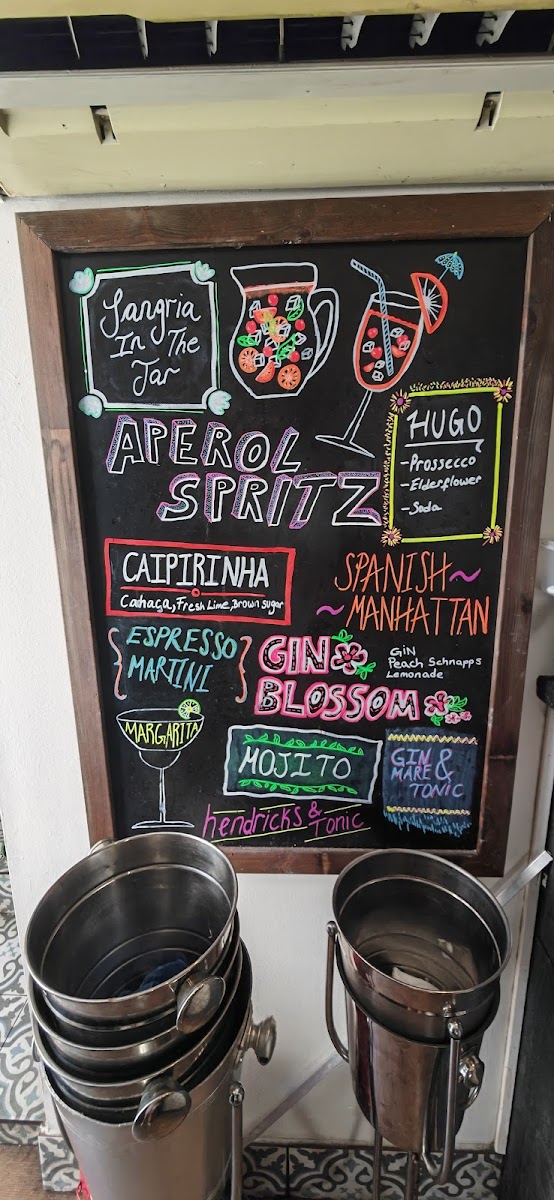 Sangria
In The
Jar
APEROL
SPRITZ
HUGO
-Prossecco
-Elderflower
-Soda
CAIPIRINHA
Cahaça, Fresh Lime, Brown sugar
SPANISH~
~MANHATTAN
ESPRESSO
MARTINI
GIN
BLOSSOM
GIN
Peach Schnapps
Lemonade
MARGARITA
MOJITO
GIN
MARE &
TONIC
hendricks &
Tonic